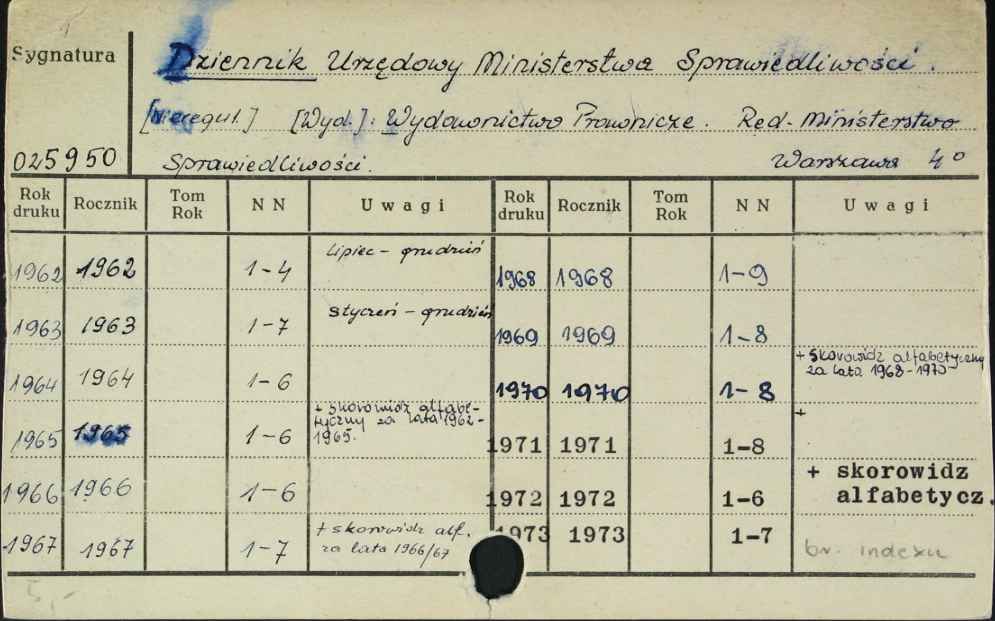 Sygnatura
Dziennik Urzędowy Ministerstwa Sprawiedliwości.
[Nieregul.] [Wyd.]: Wydawnictwo Prawnicze. Red. Ministerstwo
025950 Sprawiedliwości. Warszawa 4°
Rok druku Rocznik Tom Rok NN Uwagi Rok druku Rocznik Tom Rok NN Uwagi
1962 1962 1-4 Lipiec - grudzień 1968 1968 1-9
1963 1963 1-7 styczeń - grudzień 1969 1969 1-8
1964 1964 1-6 1970 1970 1-8 + skorowidz alfabetyczny
za lata 1968-1970
1965 1965 1-6 + skorowidz alfabe-
tyczny za lata 1962-
1965.
1971 1971 1-8 +
1966 1966 1-6 1972 1972 1-6 + skorowidz
alfabetycz.
1967 1967 1-7 + skorowidz alf.
za lata 1966/67
1973 1973 1-7 br. indexu
5,-